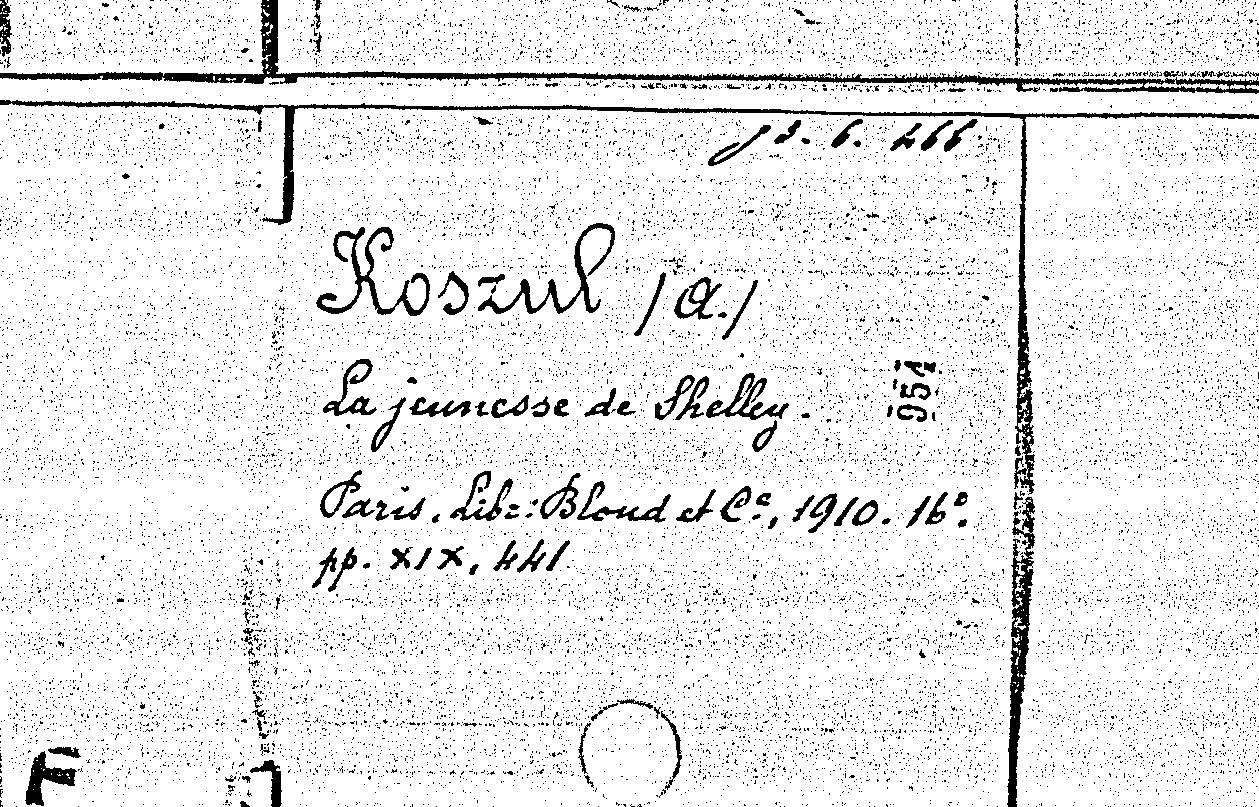 J 2. 6. 266
Koszul /A./
La jeunesse de Shelley.
951
Paris, Lib: Bloud et Cᵉ, 1910. 16°.
pp. XIX, 441
F